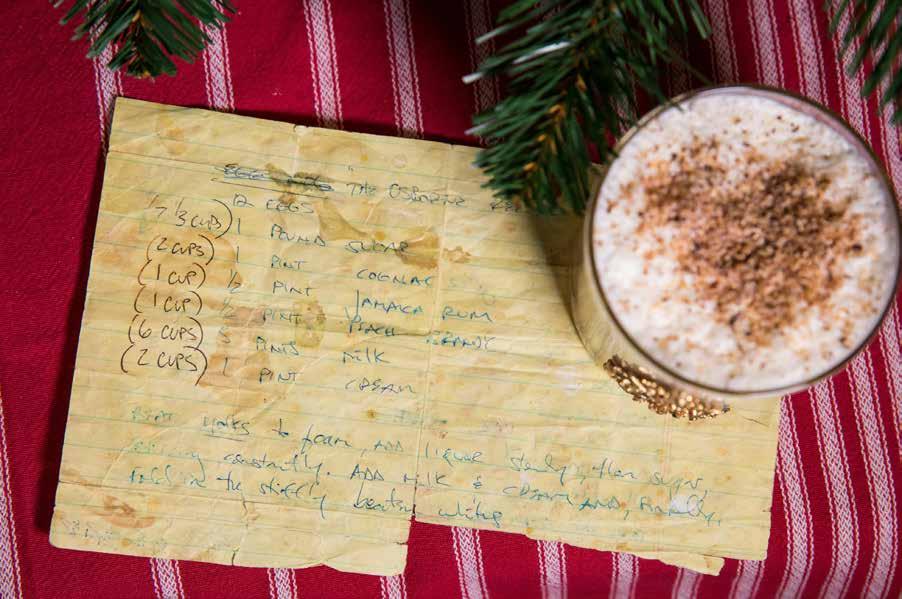 THE OSBORNE
12 EGGS
1/3 CUPS) 1 POUND SUGAR
(2 CUPS) 1 PINT COGNAC
(1 CUP) 1/2 PINT JAMAKA RUM
(1 CUP) 1/2 PINT PEACH BRANDY
(6 CUPS) 3 PINTS MILK
(2 CUPS) 1 PINT CREAM
BEAT YOLKS to foam, ADD liquor slowly, then sugar,
constantly. ADD MILK & CREAM AND, finally,
fold in the stiffly beaten whites